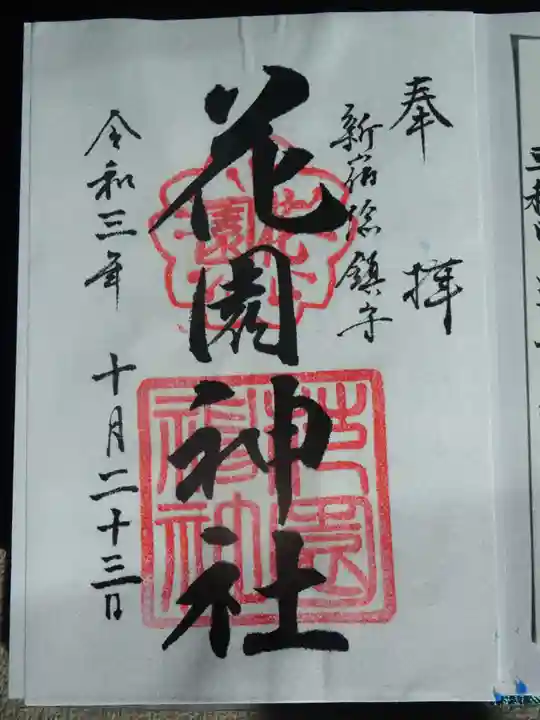 奉拝
新宿総鎮守
花園神社
令和三年 十月二十三日
花園
花園神社